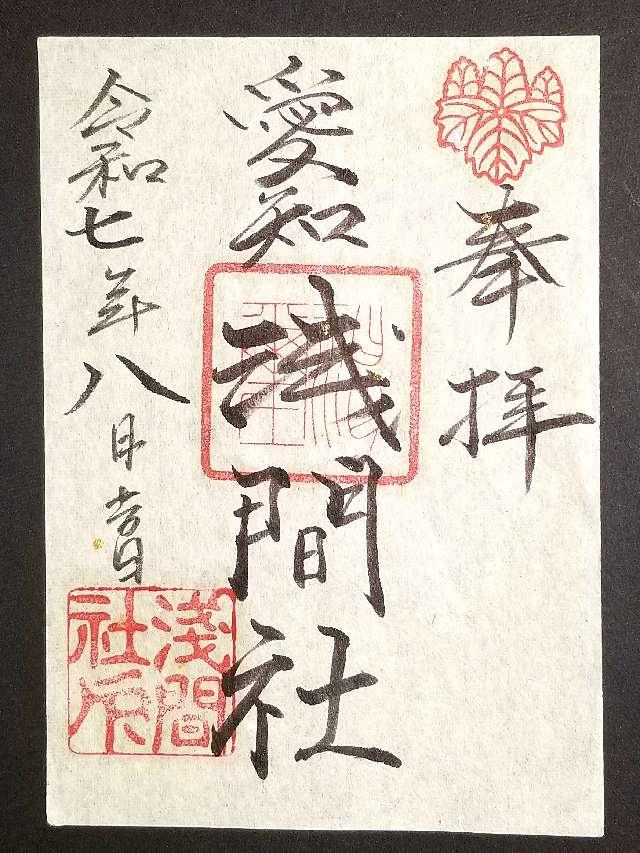 奉拝
愛知浅間社
令和七年八月吉日
淺間
社印